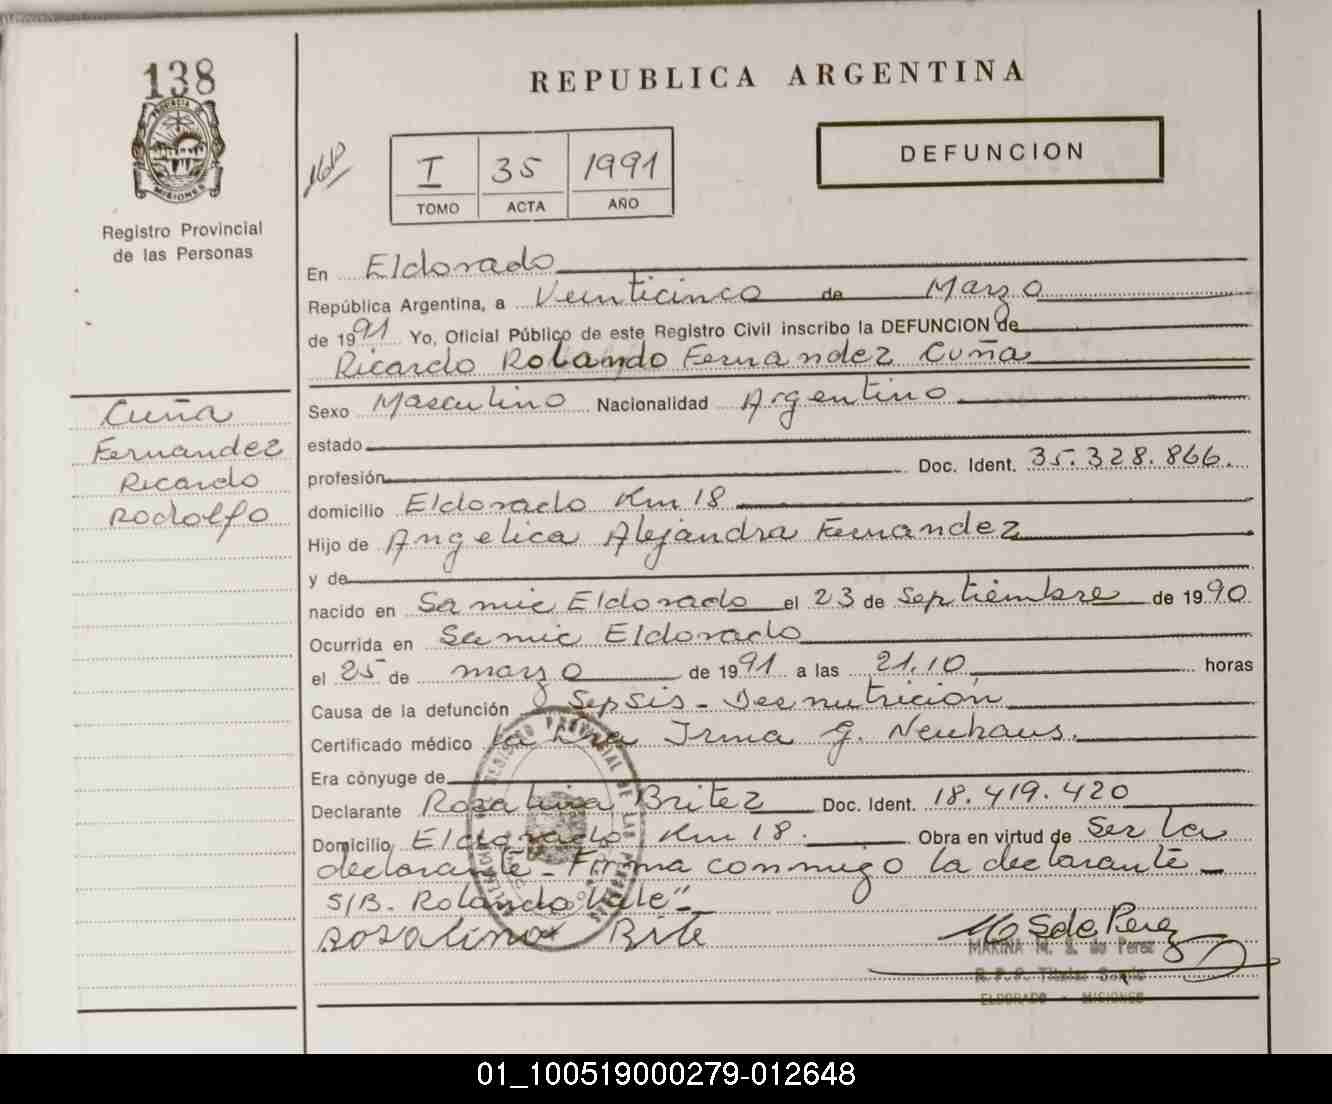 138
PROVINCIA DE
MISIONES
Registro Provincial
de las Personas
REPUBLICA ARGENTINA
DEFUNCION
I 35 1991
TOMO ACTA AÑO
En Eldorado
República Argentina, a Veinticinco de Marzo
de 1991 Yo, Oficial Público de este Registro Civil inscribo la DEFUNCION de
Ricardo Rolando Fernandez Cuña
Cuña
Fernandez
Ricardo
Rodolfo
Sexo Masculino Nacionalidad Argentino
estado
profesión Doc. Ident. 35.328.866.
domicilio Eldorado Km 18
Hijo de Angelica Alejandra Fernandez
y de
nacido en Samic Eldorado el 23 de Septiembre de 1990
Ocurrida en Samic Eldorado
el 25 de marzo de 1991 a las 21.10 horas
Causa de la defunción Sepsis - Desnutrición
Certificado médico La Dra Irma G. Neuhaus.
Era cónyuge de
Declarante Rosalina Britez Doc. Ident. 18.419.420
Domicilio Eldorado Km 18. Obra en virtud de Ser la
declarante - Firma conmigo la declarante
S/B. Rolando "Vale" -
Rosalina Brite
MARINA M. S. de Perez
R.P.P. Titular
ELDORADO - MISIONES
01_100519000279-012648